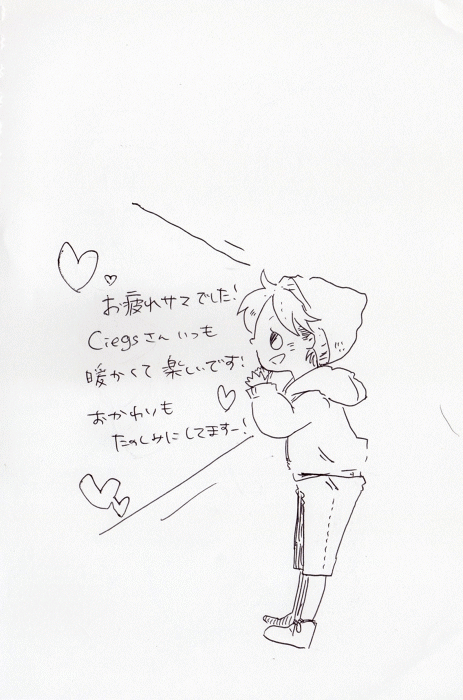 お疲れサマでした!
Ciegsさんいつも
暖かくて楽しいです!
おかわりも
たのしみにしてますー!